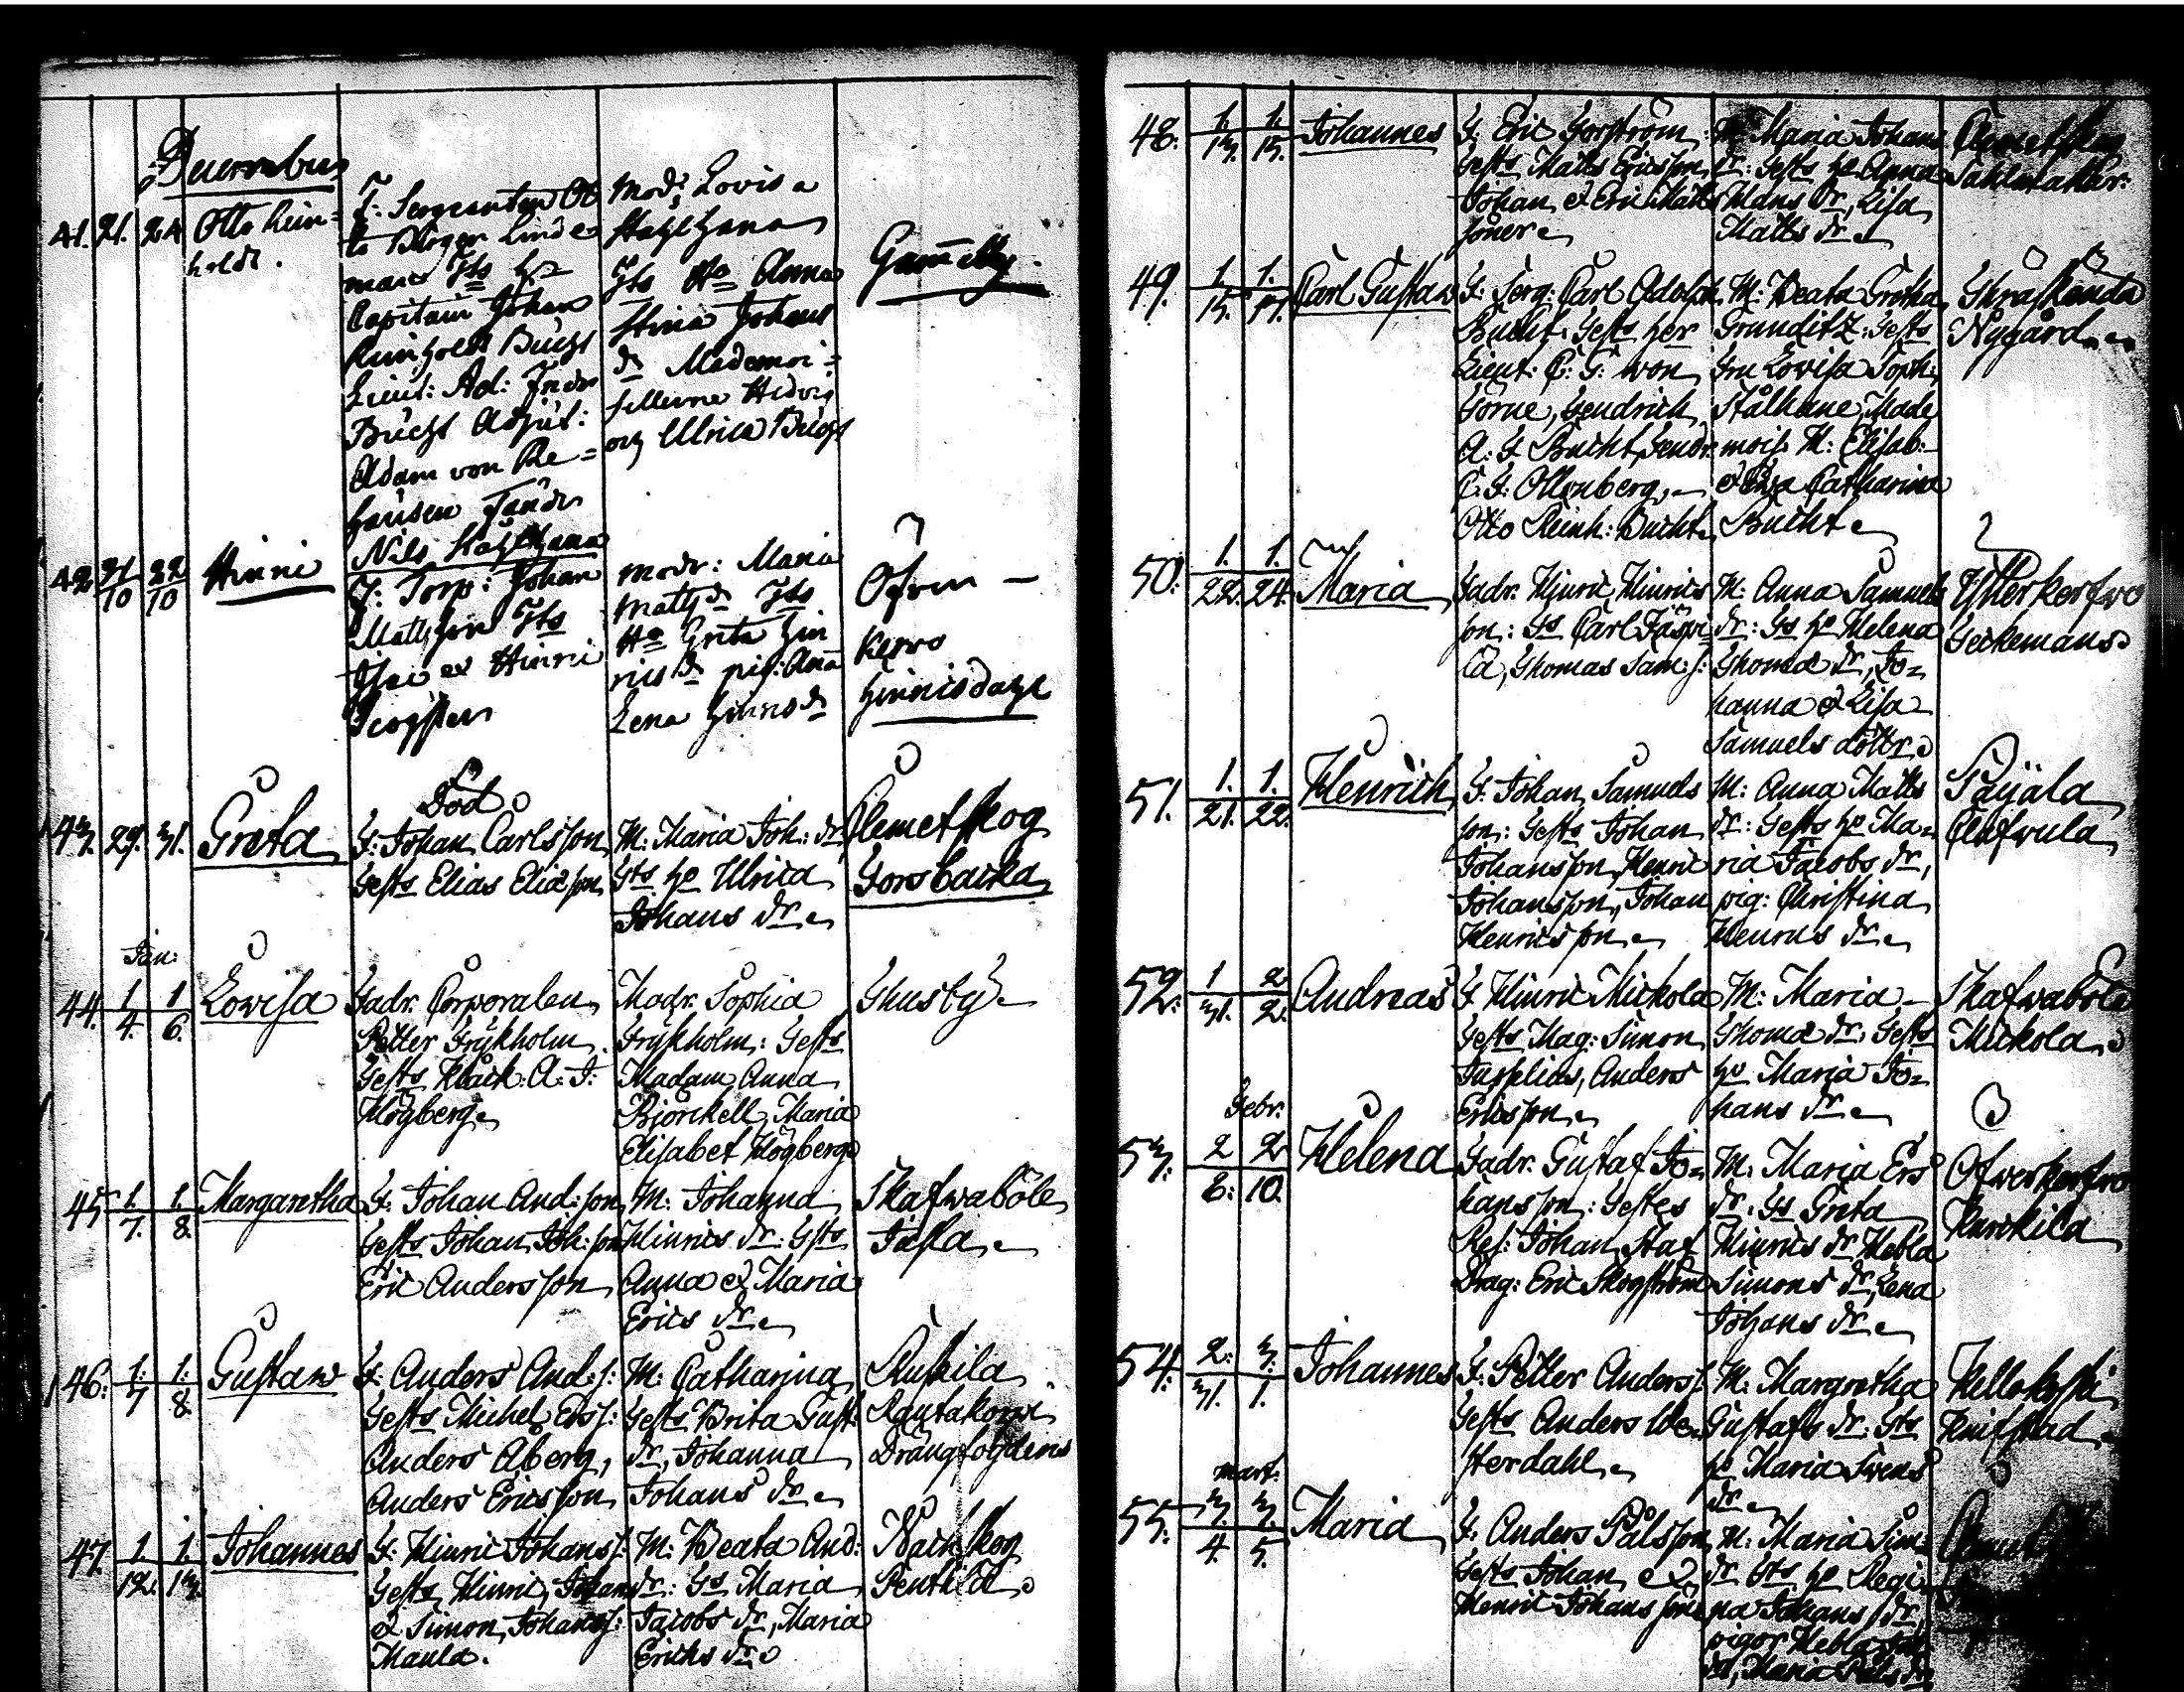 Decembris
41. 21. 24 Otto Rein=
holdt.
F: Sergeanten Ot
to Birger Linde
man Fts Hr
Capitain Johan
Reinholdt Bucht
Lieut: Ad: Fredr
Bucht Adjut:
Adam von Re=
hausen
Nils
Modr Lovisa
Fts Ha Anna
Stina Johans
dr Mademoi=
sellerne Hedvig
och Ulrica Bucht
Gammelby.
42 21/10 22/10 Hinric
F: Torp: Johan
Mattsson Fts
et Hinric
Modr: Maria
Matts dr Fts
Ha Greta Hin
rics dr pig: Anna
Lena Hinrs dr
Öfver-
Kervo
Hinnisdahl
43. 29. 31. Greta
Död
F: Johan Carlsson
Gefts Elias Eliæson
M: Maria Joh: dr
Gts ho Ulrica
Johans dr
Clemetskog
Forsbacka
Jan:
44. 1/4. 1/6. Lovisa
Fadr. Corporalen
Petter Frykholm
Gefts Klåck: A: J:
Högberg
Modr. Sophia
Frykholm: Gefts
Madam Anna
Björckell, Maria
Elisabet Högberg
Thusby
45 1./7. 1./8. Margaretha
F: Johan And:son
Gefts Johan Joh:son
Eric Andersson
M: Johanna
Hinrics dr: Gfts
Anna et Maria
Erics dr
Skafwaböle
46: 1:/7 1:/8. Gustaw
F: Anders And:s:
Gefts Michel Ers s:
Anders Åberg,
Anders Ericsson
M: Catharina
Gefts Brita Gust:
dr, Johanna
Johans dr
Ruskila
Rautakorpi
Drängfogdens
47. 1./12. 1./13. Johannes
F: Hinric Johans s:
Gefts Hinric, Johan
et Simon Johans s:
Maula.
M: Beata And:
dr: Gs Maria
Jacobs dr, Maria
Ericks dr
Nackskog
Penttilä
48: 1./13. 1./15. Johannes
F: Eric Forström
Gefts Matts Ericsson
Johan et Eric Matts
söner
M: Maria Johans
dr: Gefts ho Anna
Mans dr, Lisa
Matts dr
Clemetskog
49. 1./15. 1./17. Carl Gustaw
F: Serg: Carl Adolph
Bucht: Gefts Her
Lieut: C: G: von
Törne, Fendrich
A: F Bucht, Fendr:
C: F: Ollonberg,
Otto Reinh: Bucht
M: Beata Gretha
Grunditz: Gefts
Fru Lovisa Soph:
Stålhane, Made
mois: M: Elisab:
et Catharina
Bucht
Träskända
Nygård
50: 1./22. 1./24. Maria
Fadr. Hinric Hinrics
son: Gs Carl Jäspi
lä, Thomas Sam: s:
M: Anna Samuels
dr: Gs ho Helena
Thomæ dr, Jo=
hanna et Lisa
Samuels döttr
Ytterkerfwo
Seckemans
51. 1./21. 1./22. Henrich
F: Johan Samuels
son: Gefts Johan
Johansson, Henric
Johansson, Johan
Henricsson
M: Anna Matts
dr: Gefts ho Ma=
ria Jacobs dr,
pig: Christina
Henrics dr
Päijälä
52: 1/31. 2/2. Andreas
F: Hinric Mickola
Gefts Mag: Simon
Anders
Ericsson
M: Maria
Thomæ dr: Gefts
ho Maria Jo=
hans dr
Skafwaböle
Mickola
Febr:
53. 2/6: 2/10. Helena
Fadr. Gustaf Jo=
hansson: Gestes
Res: Johan Staf
Drag: Eric Skogström
M: Maria Ers
dr. Gs Greta
Hinrics dr Hebla
Simons dr, Lena
Johans dr
Öfwerkerfwo
54. 2:/31. 3./1. Johannes
F: Petter Anders s:
Gefts Anders We
sterdahl
M: Margretha
Gustafs dr: Gts
ho Maria Swens
dr
Kellokoski
Knifstad
Mart:
55. 3./4. 3./5. Maria
F: Anders Pålsson
Gefts Johan et
Henric Johans söner
M: Maria Sim=
dr Gts ho Regi=
na Johans dr
pigor Hebla
Maria Påls dr